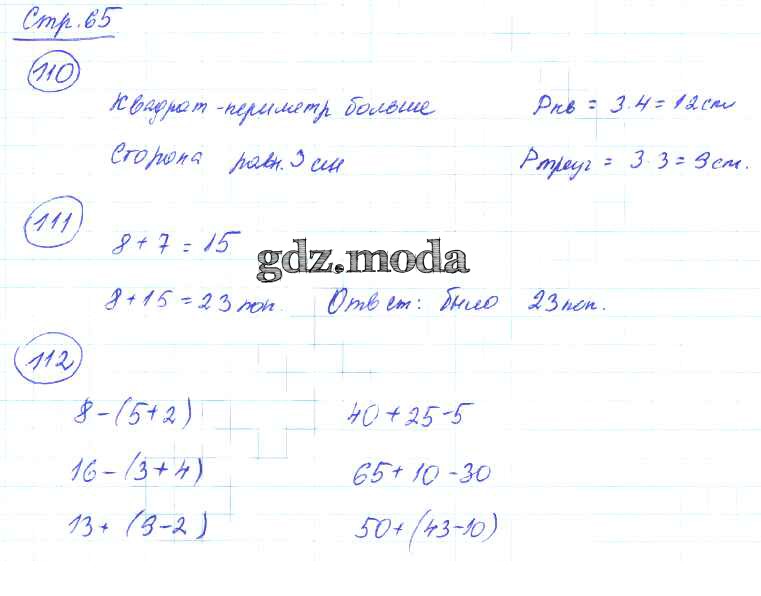 Стр. 65
110
Квадрат - периметр больше Pкв = 3·4 = 12 см
Сторона равн. 3 см Pтреуг = 3·3 = 9 см.
111
8 + 7 = 15
gdz.moda
8 + 15 = 23 поп. Ответ: было 23 поп.
112
8 - (5+2) 40 + 25 - 5
16 - (3 + 4) 65 + 10 - 30
13 + (9 - 2) 50 + (43 - 10)